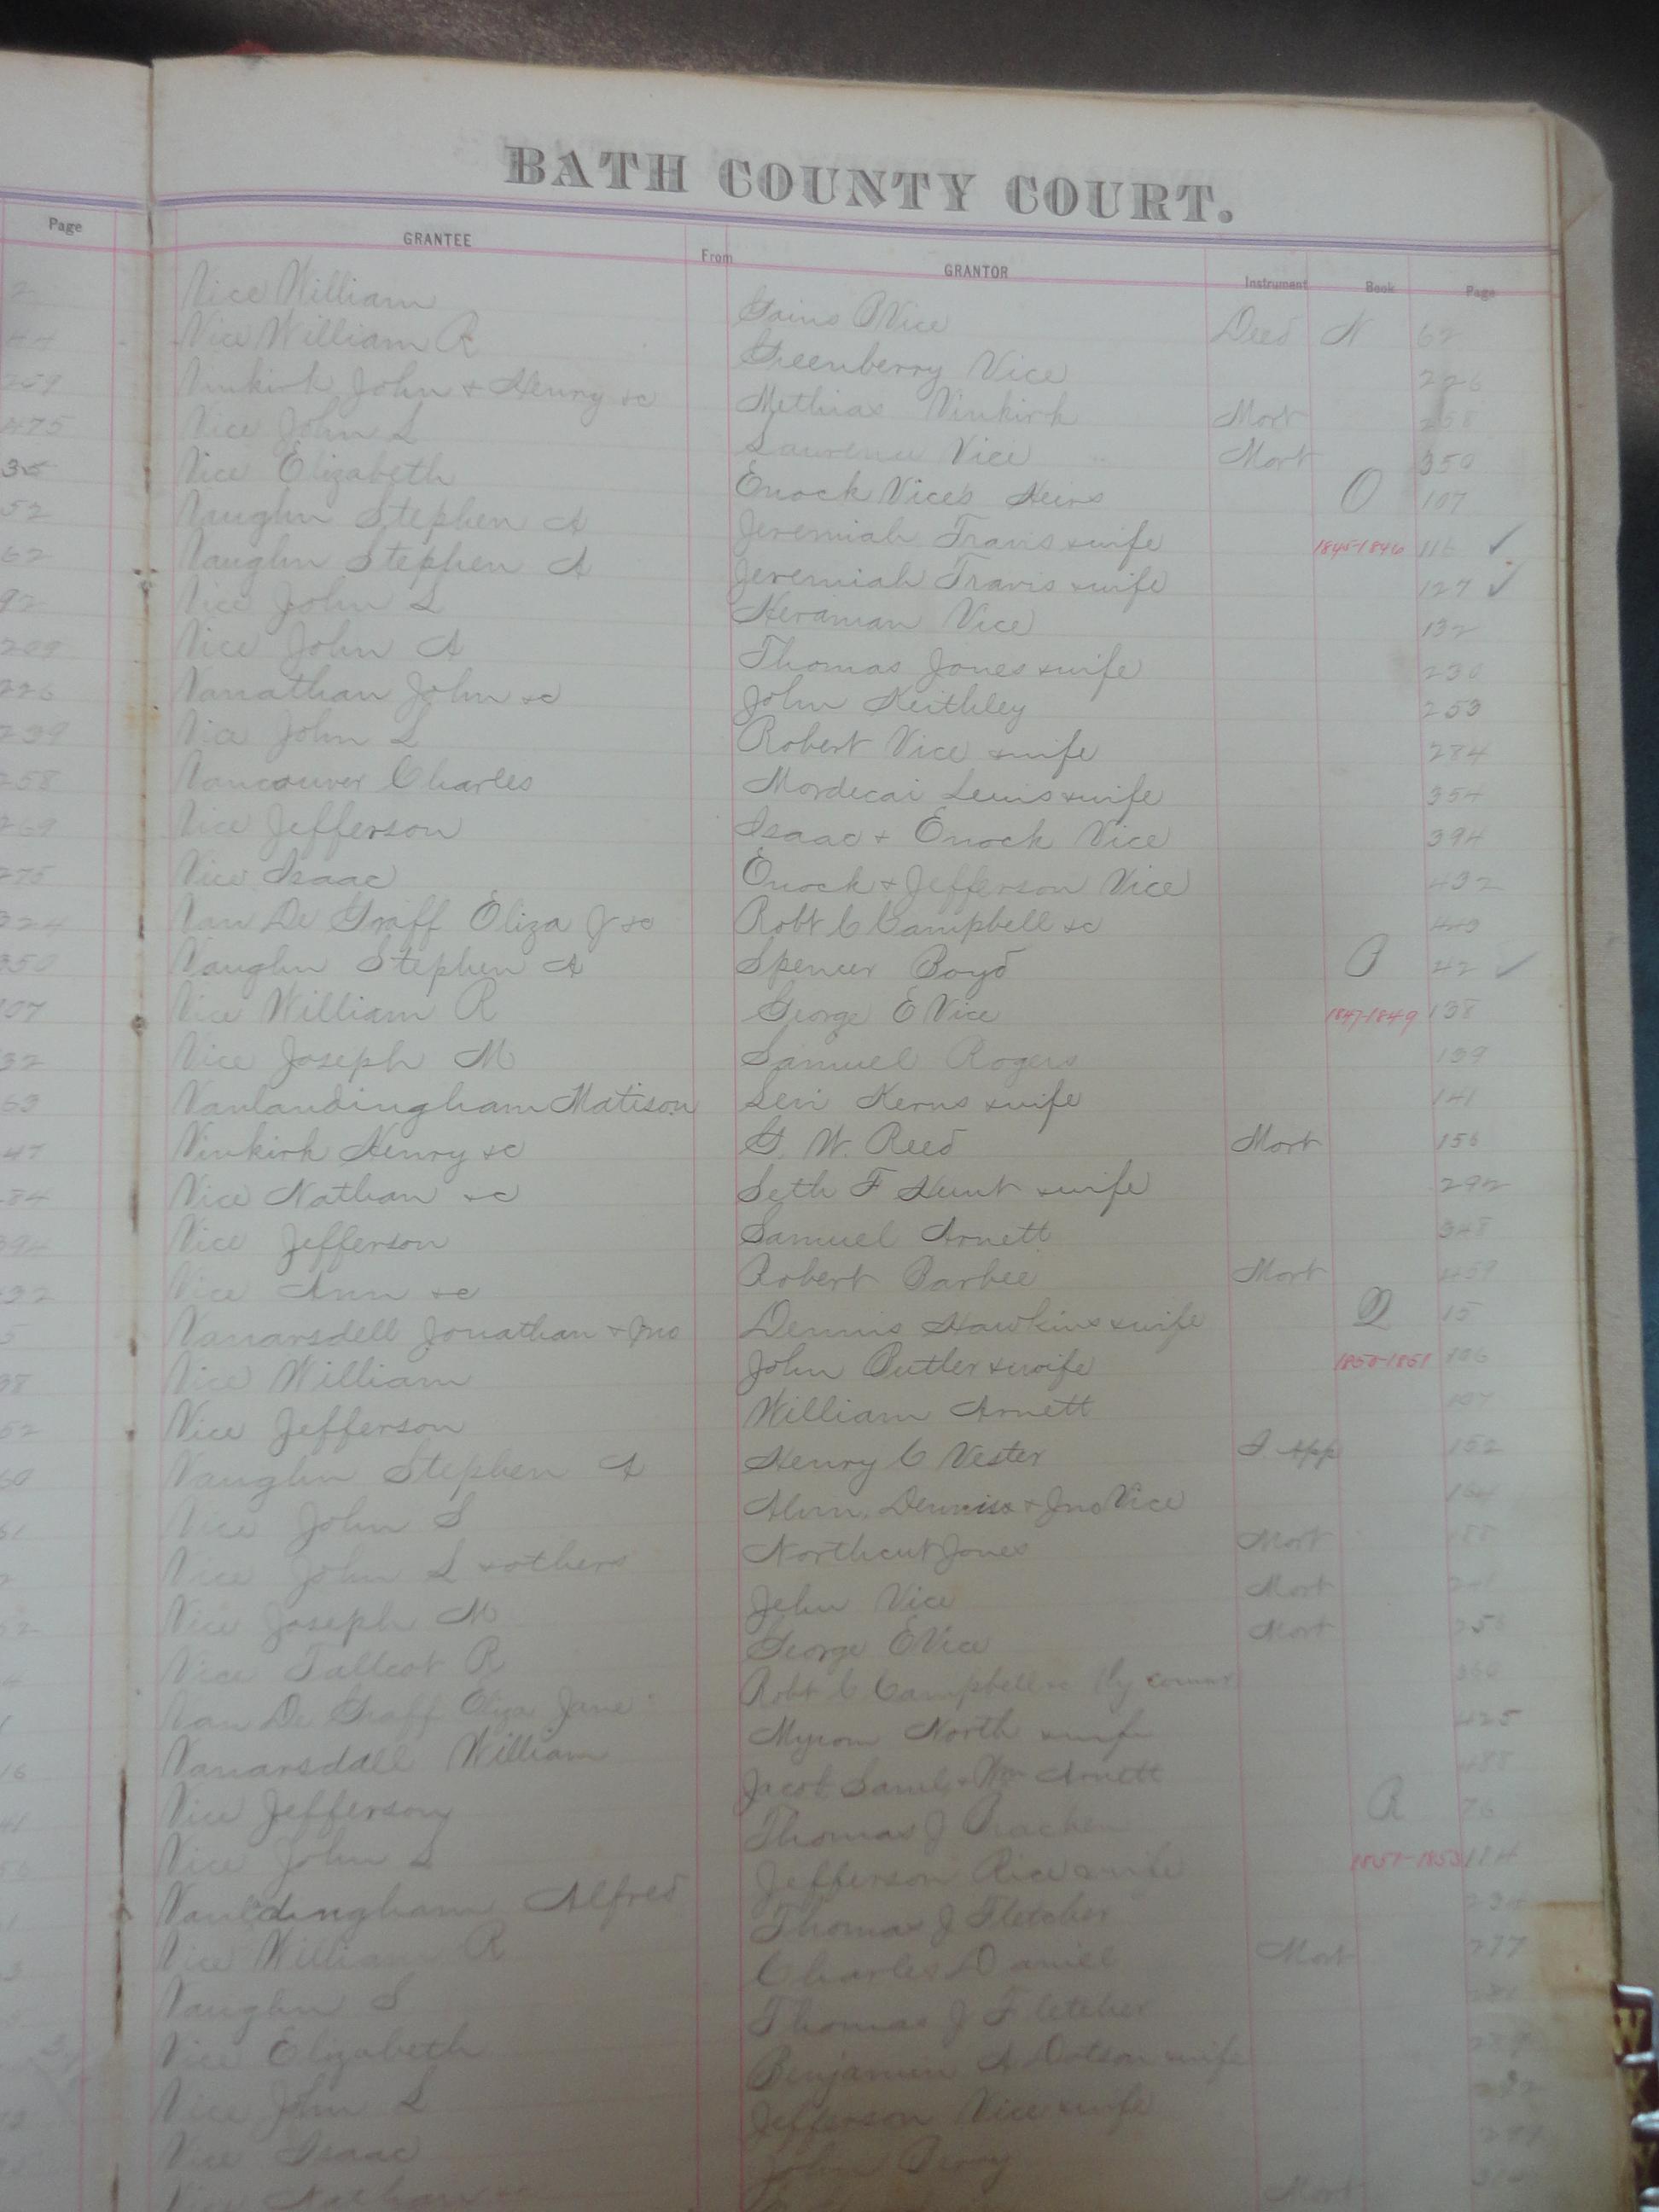 BATH COUNTY COURT.
Page GRANTEE From GRANTOR Instrument Book Page
2 Vice William Gains P Vice Deed N 62
Vice William R Greenberry Vice 226
259 Vinkirk John & Henry &c Methias Vinkirk Mort 258
475 Vice John L Laurence Vice Mort 350
35 Vice Elizabeth Enock Vice's Heirs O 107
52 Vaughn Stephen A Jeremiah Travis & wife 1845-1846 116 ✓
62 Vaughn Stephen A Jeremiah Travis & wife 127 ✓
92 Vice John L Heraman Vice 132
209 Vice John A Thomas Jones & wife 230
226 Vanathan John &c John Keithley 253
239 Vice John L Robert Vice & wife 284
258 Vancouver Charles Mordecai Lewis & wife 354
269 Vice Jefferson Isaac & Enock Vice 394
275 Vice Isaac Enock & Jefferson Vice 432
324 Van De Graff Eliza J &c Robt C Campbell &c 440
350 Vaughn Stephen A Spencer Boyd P 42 ✓
107 Vice William R George E Vice 1847-1849 138
32 Vice Joseph M Samuel Rogers 139
63 Vanlandingham Matison Levi Kerns & wife 141
47 Vinkirk Henry &c G. W. Reed Mort 156
84 Vice Nathan &c Seth F Hunt & wife 292
394 Vice Jefferson Samuel Arnett 348
432 Vice Ann &c Robert Barbee Mort 459
5 Vanarsdell Jonathan & Jno Dennis Hawkins & wife Q 15
38 Vice William John Butler & wife 1850-1851 106
52 Vice Jefferson William Arnett 107
60 Vaughn Stephen A Henry C Vester I. App 152
61 Vice John S Alvin, Dennis & Jno Vice 164
Vice John L & others Northcut Jones Mort 188
52 Vice Joseph M John Vice Mort 241
Vice Tallcot R George E Vice Mort 256
Van De Graff Eliza Jane Robt C Campbell &c By commr 360
16 Vanarsdall William Myrom North & wife 425
41 Vice Jefferson Jacob Saml & Wm Arnett 488
56 Vice John L Thomas J R 76
Alfred Jefferson Rice & wife 1851-1853 184
Vice William R Thomas J Fletcher
Vaughn S Charles Daniel Mort 277
Vice Elizabeth Thomas J Fletcher
Vice John L Benjamin A Dotson & wife
Vice Isaac Jefferson Vice & wife 292
Vice Nathan &c John
Mort